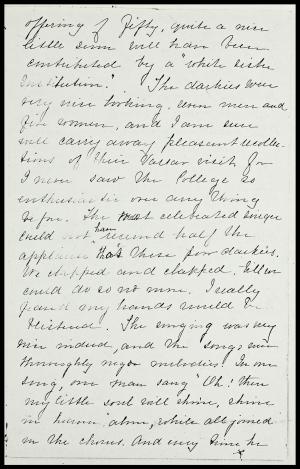 offering of Fifty, quite a nice
little sum will have been
contributed by a "white like
Institution." The darkies were
very nice looking, seven men and
five women, and I am sure
will carry away pleasant recollec-
tions of their Vassar visit, for
I never saw the College so
enthusiastic over any thing
before. The most celebrated singer
could not have received half the
applause that these poor darkies.
We clapped and clapped, till we
could do so no more. I really
feared my hands would be
blistered. The singing was very
nice indeed, and the songs, were
thoroughly negro melodies. In one
song, one man sang "Oh! then
my little soul will shine, shine
in heaven" alone, while all joined
in the chorus. And every time he